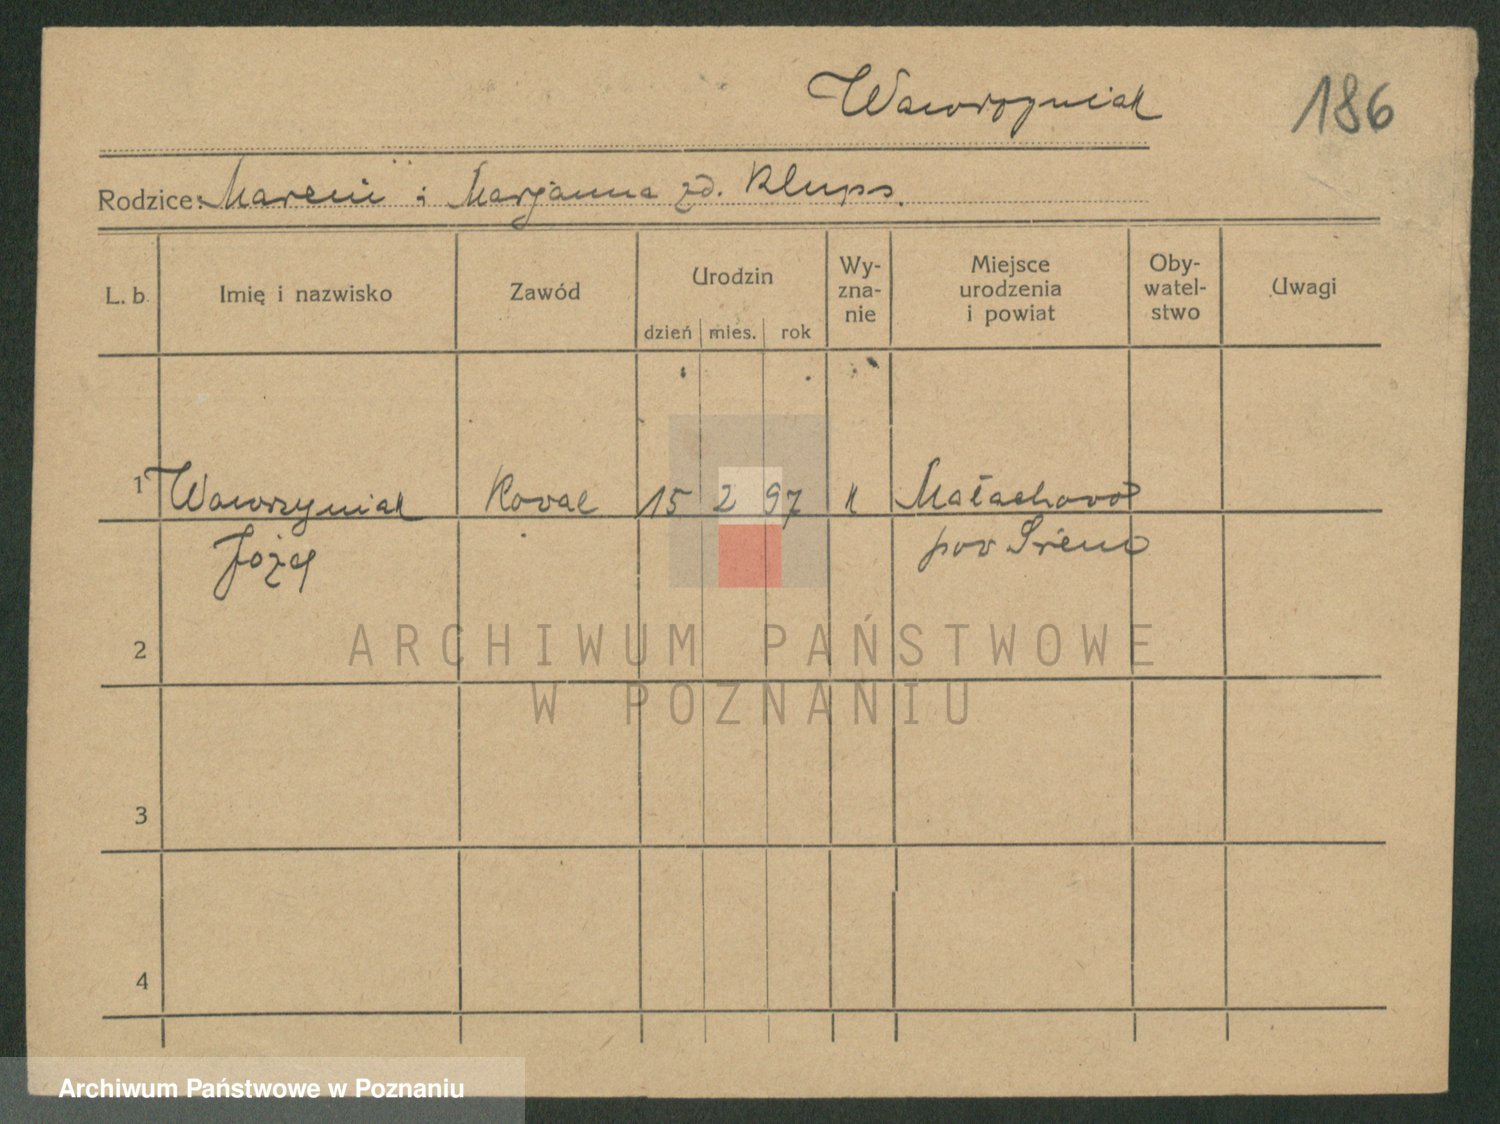 Wawrzyniak
186
Rodzice: Marcin i Marjanna zd. Klups.
L. b. Imię i nazwisko Zawód Urodzin dzień mies. rok Wy-zna-nie Miejsce urodzenia i powiat Oby-watel-stwo Uwagi
1 Wawrzyniak Kowal 15 2 97 k Małachowo
Józef pow Śrem
2
3
4
ARCHIWUM PAŃSTWOWE
W POZNANIU
Archiwum Państwowe w Poznaniu